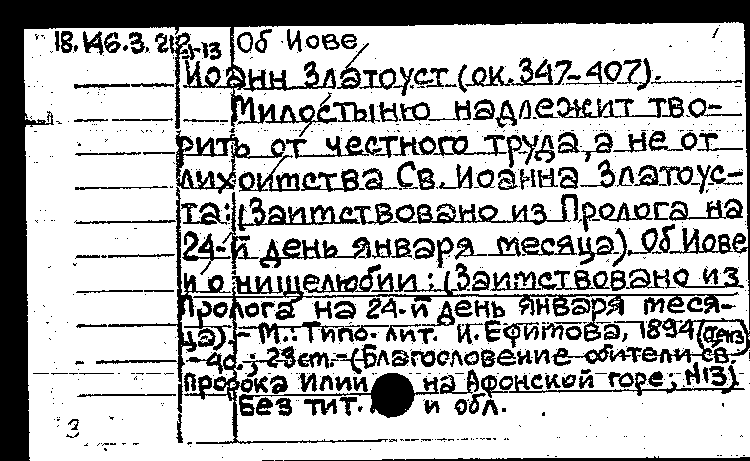 18.146.3.212-13 Об Иове
Иоанн Златоуст (ок.347-407).
Милостыню надлежит тво-
рить от честного труда, а не от
лихоимства Св. Иоанна Златоус-
та: (Заимствовано из Пролога на
24-й день января месяца). Об Иове
и о нищелюбии: (Заимствовано из
Пролога на 24-й день января меся-
ца).- М.: Типо-лит. И. Ефимова, 1894 (ценз)
.- 4с.; 23см.-(Благословение обители св.
Пророка Илии на Афонской горе; №13)
Без тит. и обл.
3